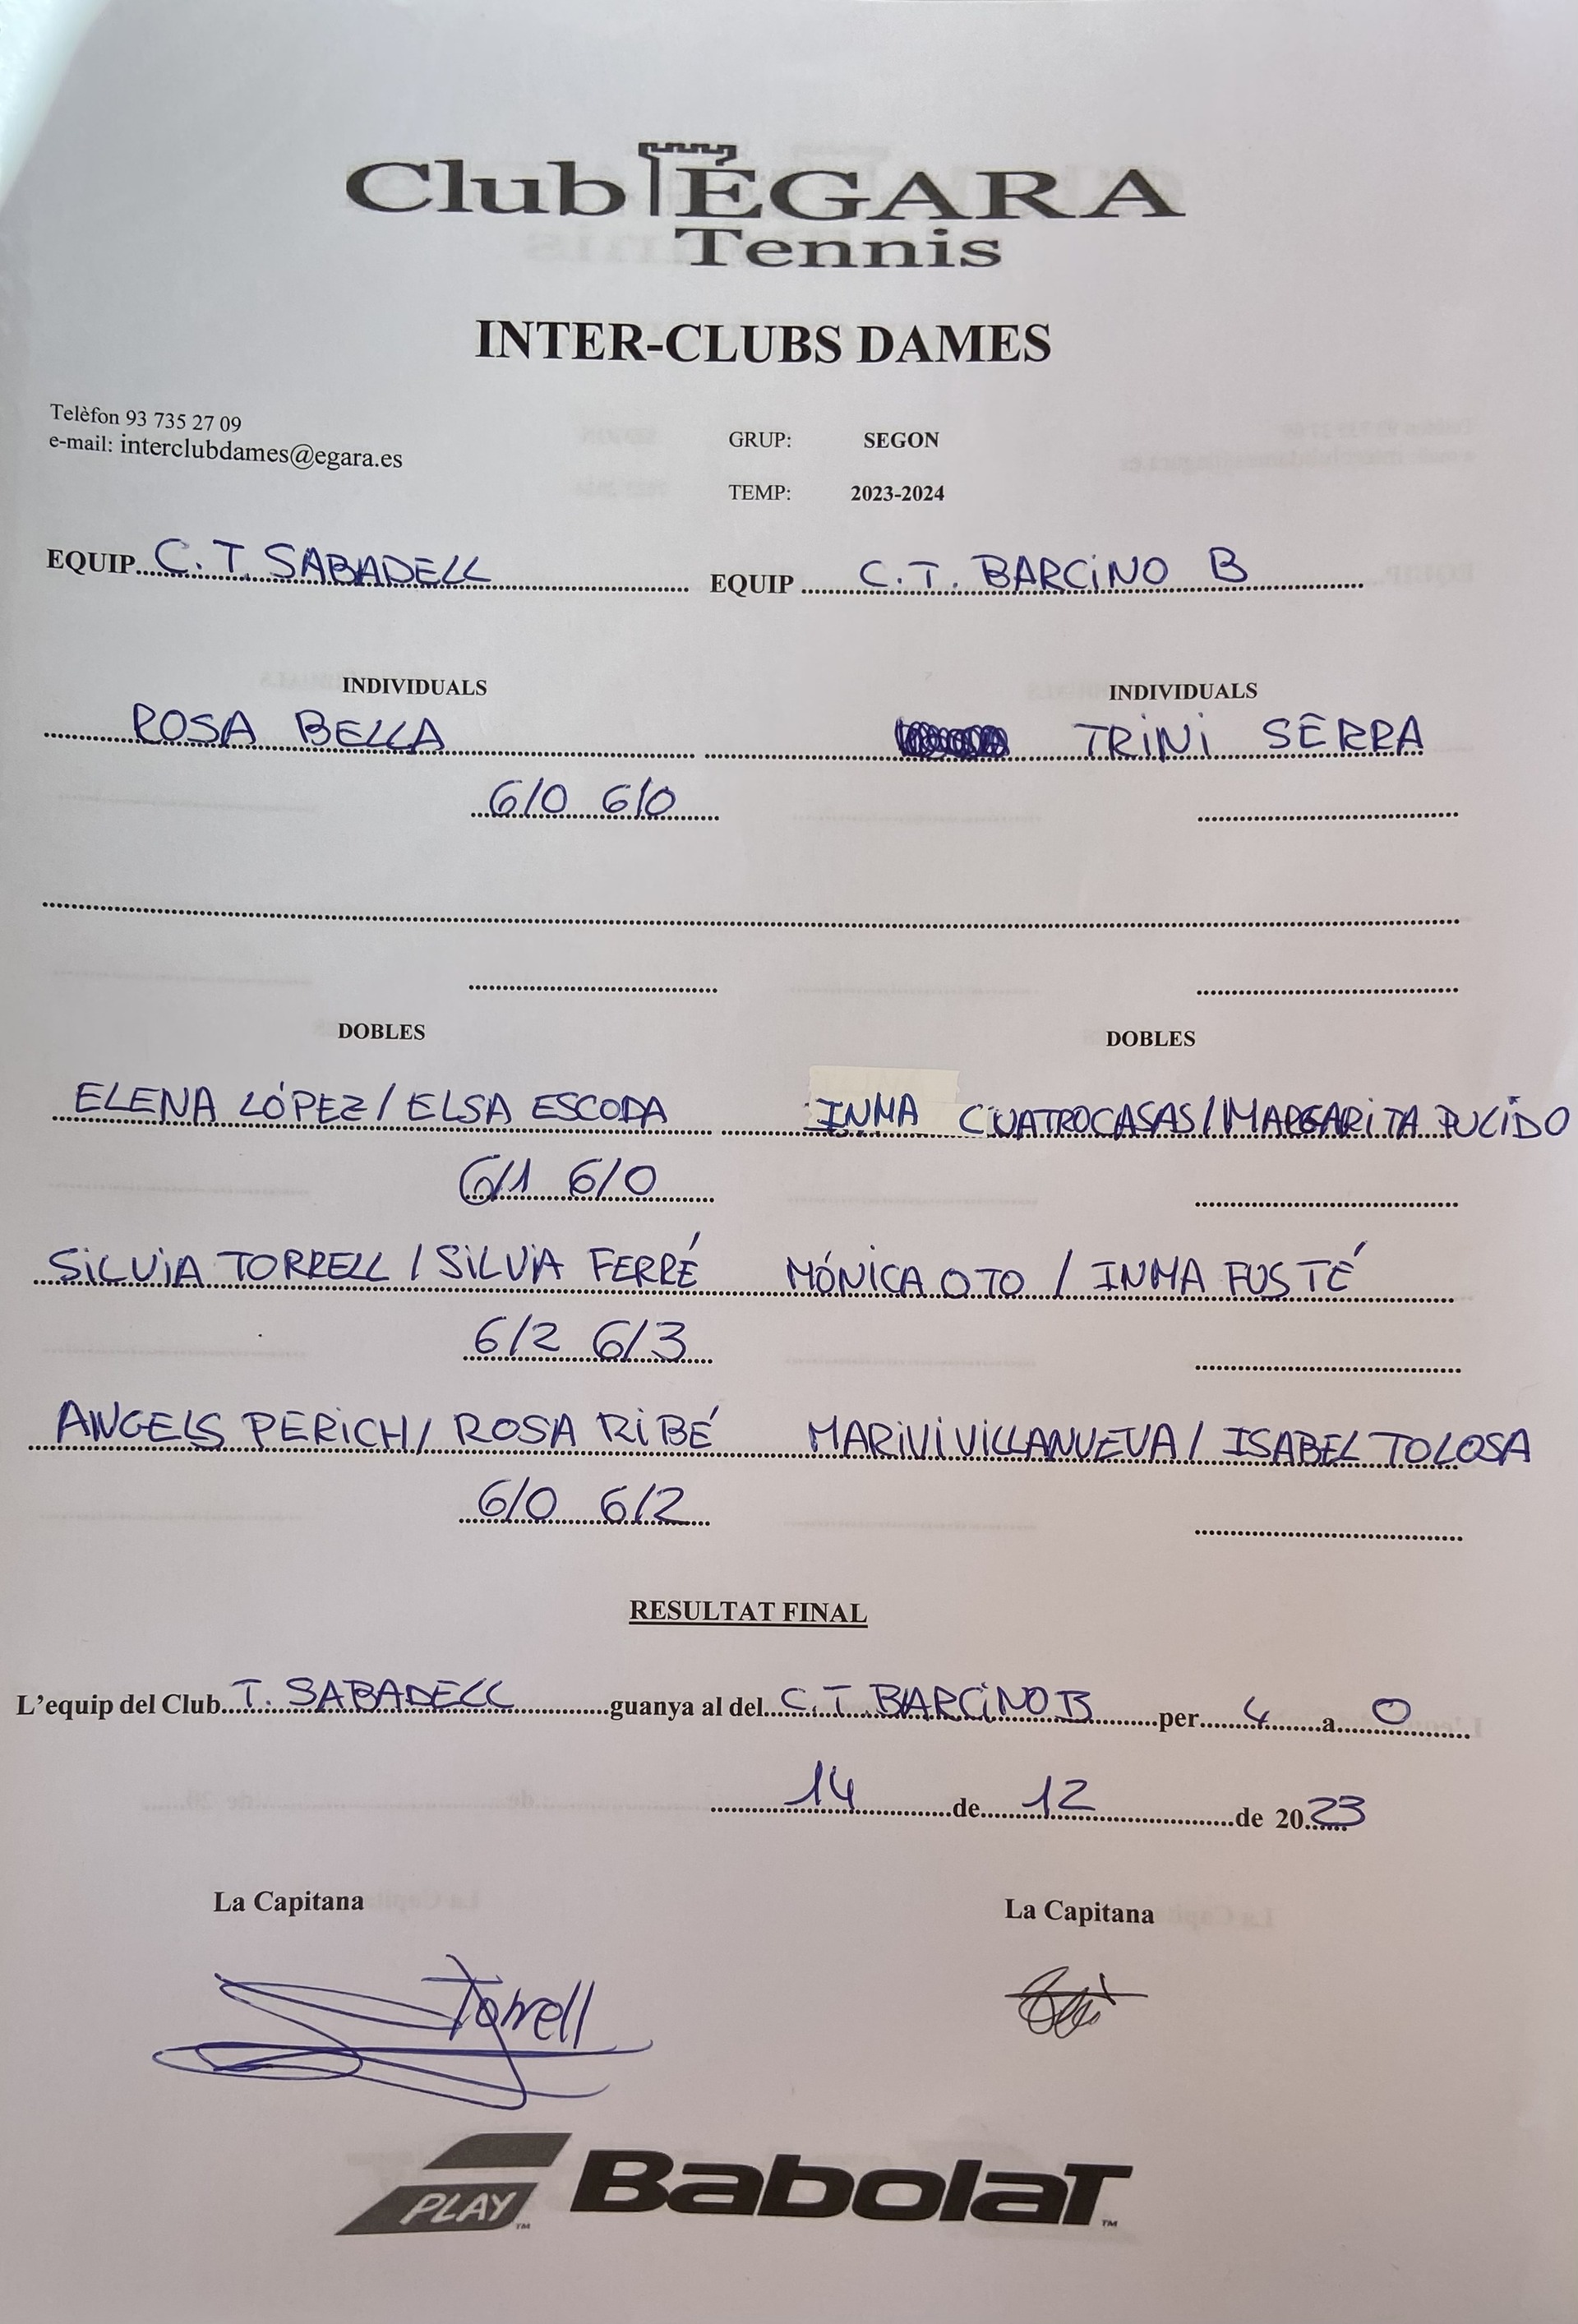 Club ÈGARA
Tennis
INTER-CLUBS DAMES
Telèfon 93 735 27 09
e-mail: interclubdames@egara.es
GRUP: SEGON
TEMP: 2023-2024
EQUIP C.T. SABADELL EQUIP C.T. BARCINO B
INDIVIDUALS INDIVIDUALS
ROSA BELLA TRINI SERRA
6/0 6/0
DOBLES DOBLES
ELENA LÓPEZ / ELSA ESCODA INMA CUATROCASAS / MARGARITA PULIDO
6/1 6/0
SILVIA TORRELL / SILVIA FERRÉ MÓNICA OTO / INMA FUSTÉ
6/2 6/3
ANGELS PERICH / ROSA RIBÉ MARIVI VILLANUEVA / ISABEL TOLOSA
6/0 6/2
RESULTAT FINAL
L'equip del Club T. SABADELL guanya al del C.T. BARCINO B per 4 a 0
14 de 12 de 2023
La Capitana La Capitana
Torrell
PLAY™ BabolaT™